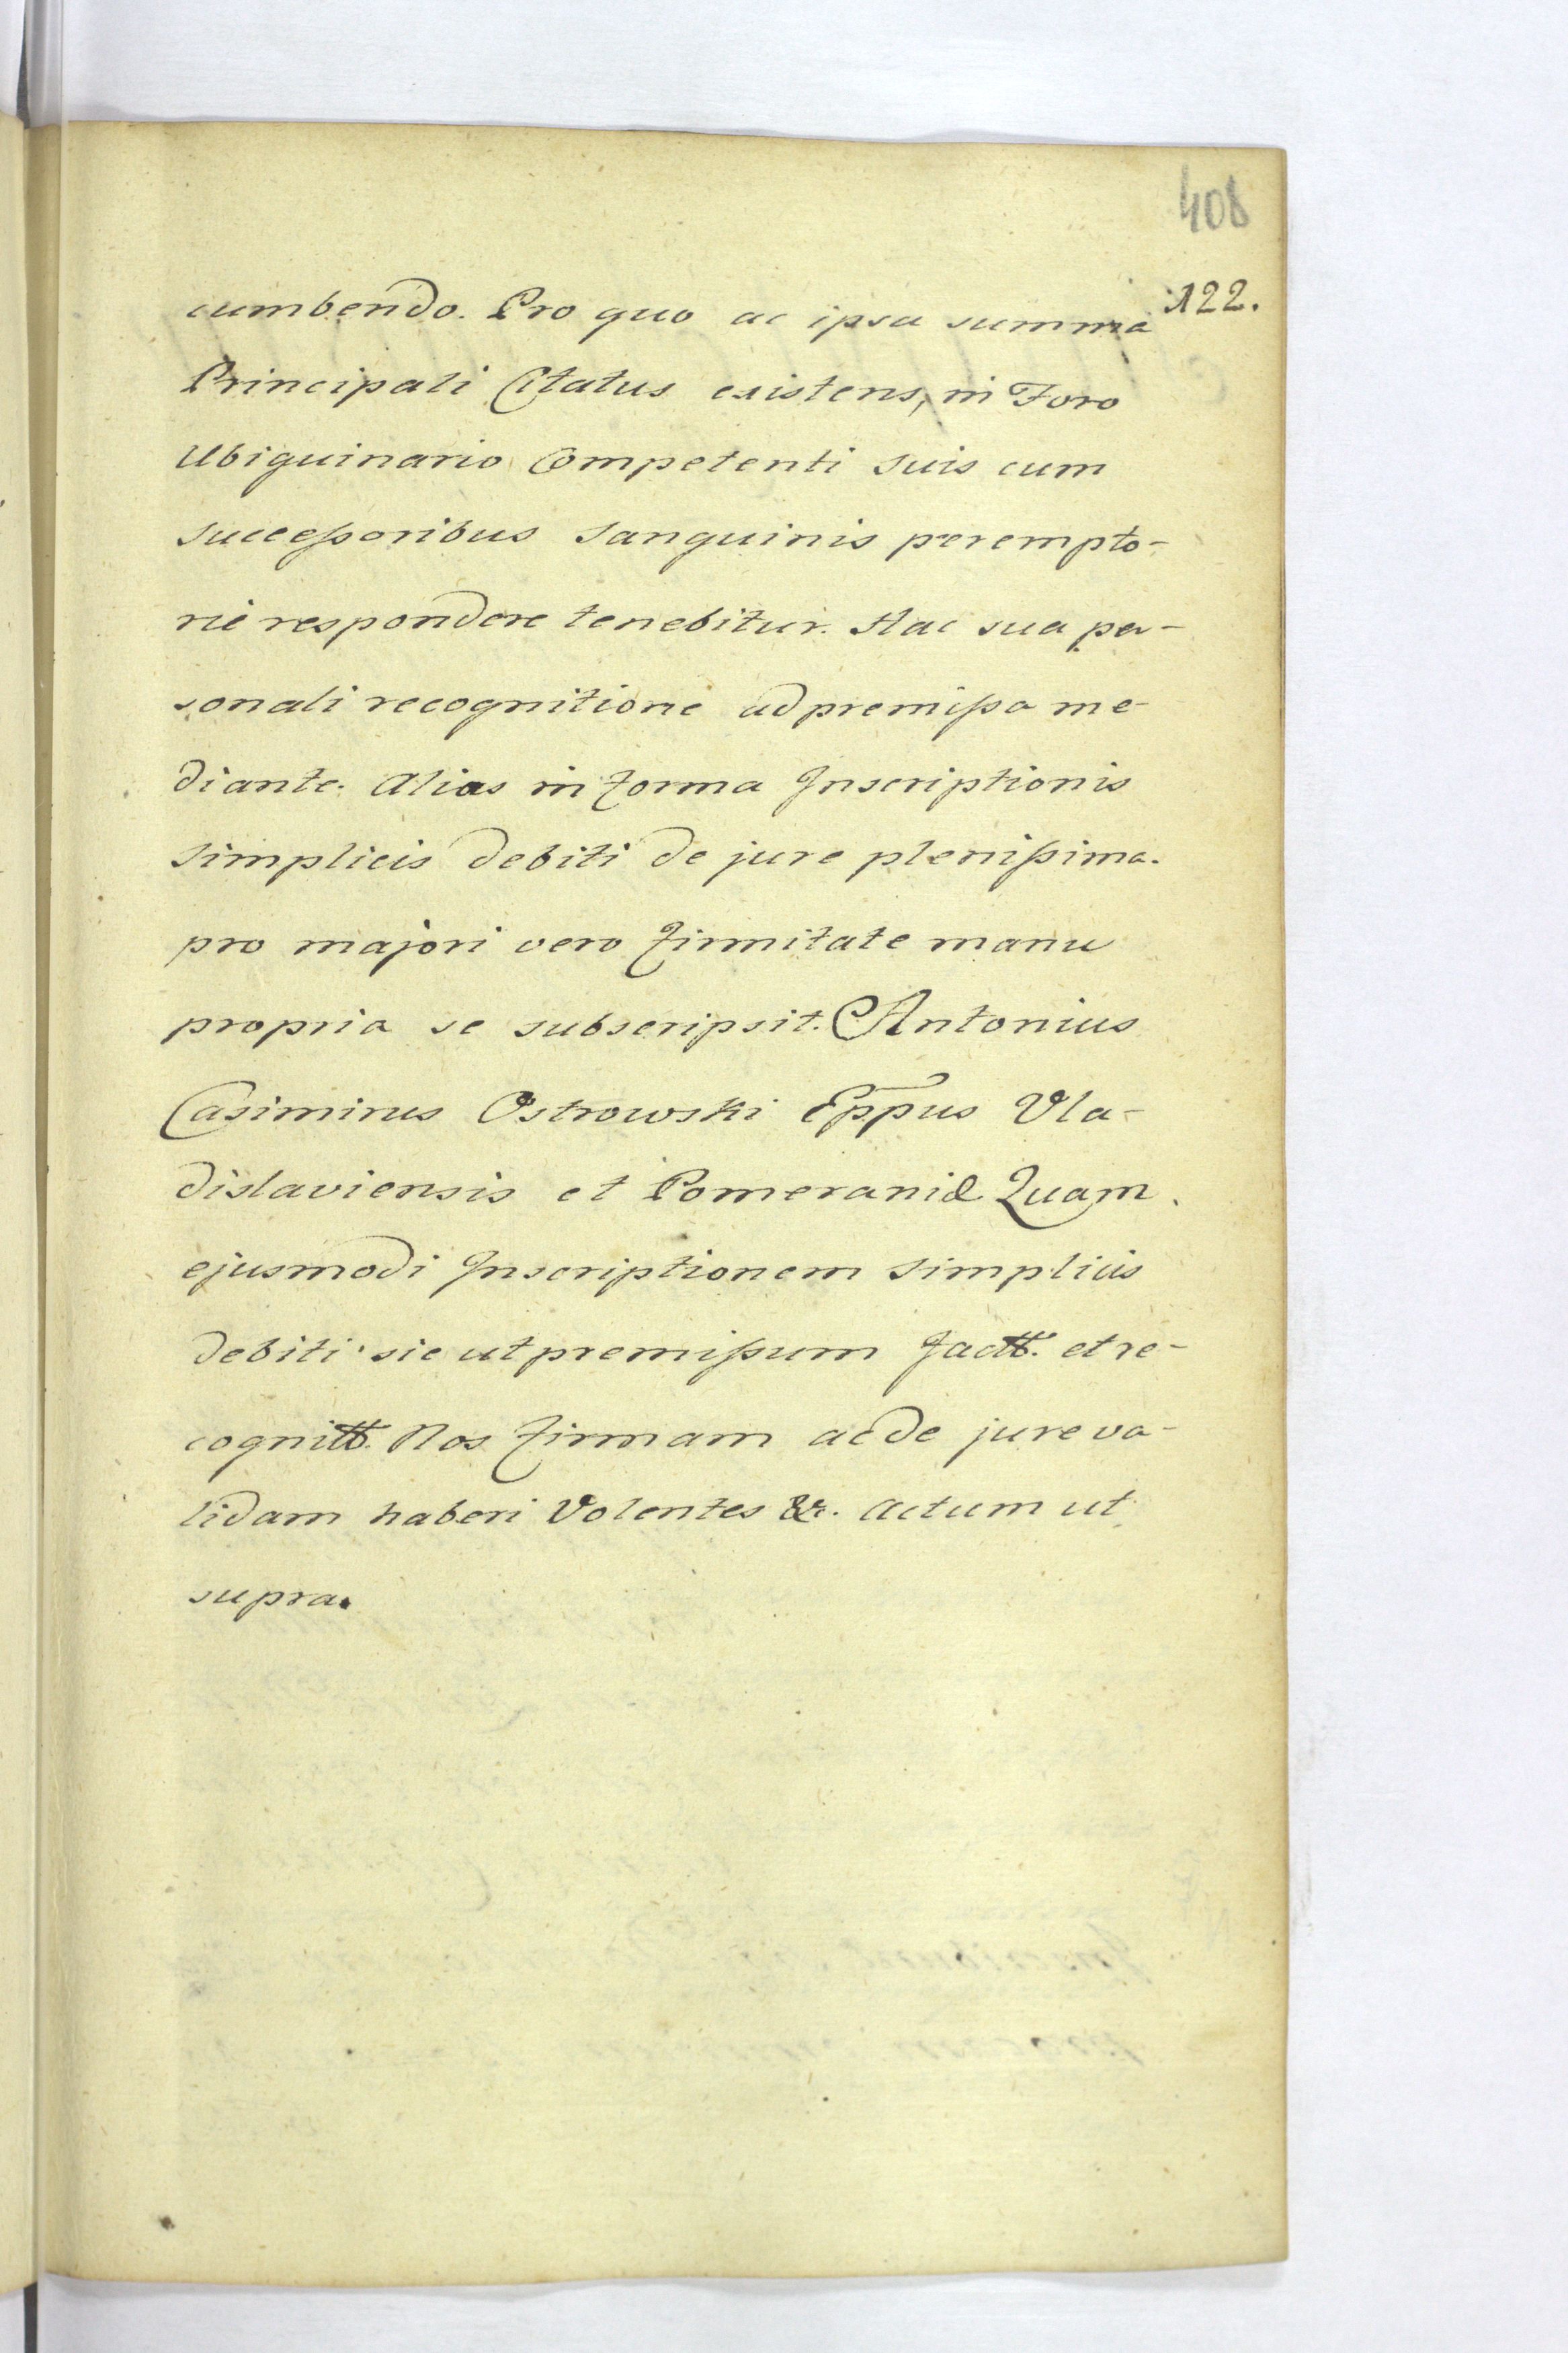 408
122.
cumbendo. Pro quo ac ipsa summa
Principali Citatus existens, in Foro
Ubiquinario Competenti suis cum
successoribus sanguinis perempto-
rie respondere tenebitur. Hac sua per-
sonali recognitione ad premissa me-
diante. Alias in forma Inscriptionis
simplicis debiti de jure plenissima.
pro majori vero firmitate manu
propria se subscripsit. Antonius
Casimirus Ostrowski Eppus Vla-
dislaviensis et Pomeraniæ Quam
ejusmodi Inscriptionem simplicis
debiti sic ut premissum factt. et re-
cognitt. Nos firmam ac de jure va-
lidam haberi Volentes &c. Actum ut
supra.